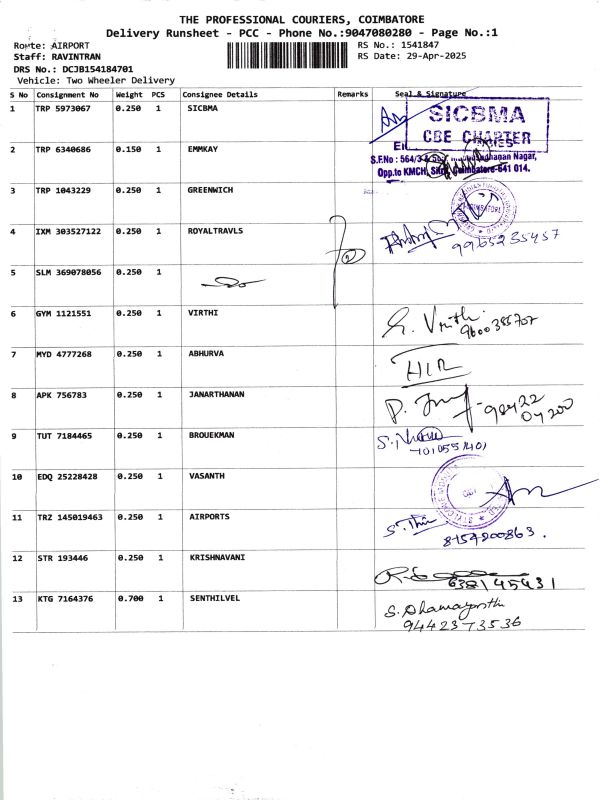 THE PROFESSIONAL COURIERS, COIMBATORE
Delivery Runsheet - PCC - Phone No.:9047080280 - Page No.:1
Route: AIRPORT RS No.: 1541847
Staff: RAVINTRAN RS Date: 29-Apr-2025
DRS No.: DCJB154184701
Vehicle: Two Wheeler Delivery
S No Consignment No Weight PCS Consignee Details Remarks Seal & Signature
1 TRP 5973067 0.250 1 SICBMA
SICBMA
CBE CHARTER
2 TRP 6340686 0.150 1 EMMKAY
S.F.No : 564/3
Nagar,
Opp.to KMCH, Coimbatore-641 014.
3 TRP 1043229 0.250 1 GREENWICH
COIMBATORE
4 IXM 303527122 0.250 1 ROYALTRAVLS
9965235457
5 SLM 369078056 0.250 1
6 GYM 1121551 0.250 1 VIRTHI
G. Virthi
9600385707
7 MYD 4777268 0.250 1 ABHURVA
8 APK 756783 0.250 1 JANARTHANAN
98422
04200
9 TUT 7184465 0.250 1 BROUEKMAN
7010551401
10 EDQ 25228428 0.250 1 VASANTH
11 TRZ 145019463 0.250 1 AIRPORTS
8154200863.
12 STR 193446 0.250 1 KRISHNAVANI
638145431
13 KTG 7164376 0.700 1 SENTHILVEL
S. Dhamayanthi
9442373536